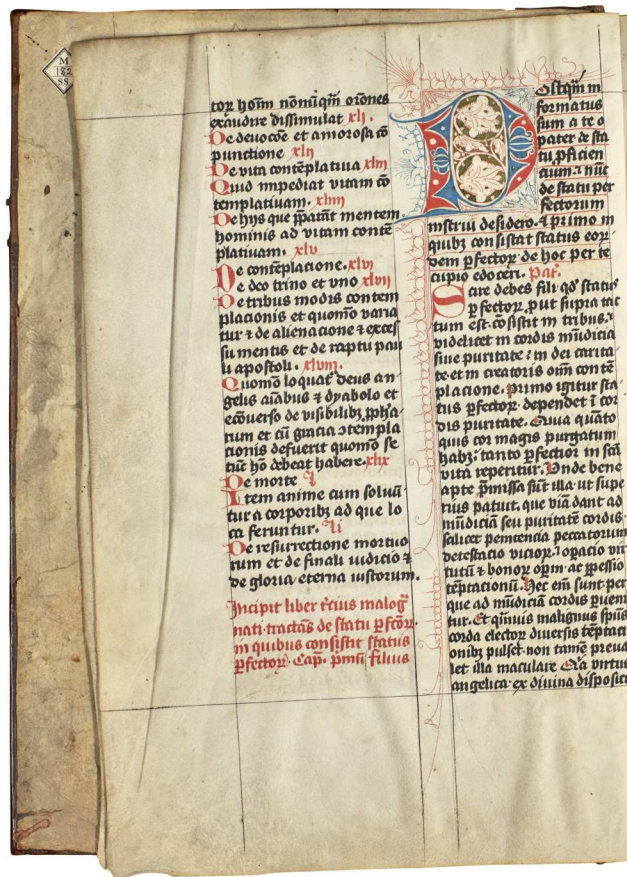 M
182
SS
tor hoīm nōmiqm̄ orōnes
exaudire dissimulat xlj.
De deuocōe et amorosa cō
punctione xlij
De vita contēplatiua xliij
Quid impediat vitam cō
templatiuam. xliiij
De hijs que p̄parāt mentem
hominis ad vitam contē
platiuam. xlv
De contēplacione. xlvj
De deo trino et vno xlvij
De tribus modis contem
placionis et quomō varia
tur ⁊ de alienacione ⁊ exces
su mentis et de raptu pau
li apostoli. xlviij.
Quomō loquat᷑ deus an
gelis aīabus ⁊ dyabolo et
ecōuerso de visibilibꝫ ꝓpha-
rum et cū gracia ↄtempla
cionis defuerit quomō se
tūc hō debeat habere. xlix
De morte l
Item anime cum soluū
tur a corporibꝫ ad que lo
ca feruntur. li
De resurrectione mortuo
rum et de finali iudicio ⁊
de gloria eterna iustorum.
Incipit liber t̄cius malog͛
nati tractās de statu ꝑfcōꝝ
in quibus consistit status
ꝑfectoꝝ. Cap. pͥmū filius
Postqm̄ in
formatus
sum a te o
pater de sta
tu ꝓficien
cium. ⁊ nūc
de statu per
fectorum
instrui desidero. ⁊ primo in
quibꝫ consistat status eorū
dem ꝑfectoꝝ de hoc per te
cupio edoceri. Pat͛.
Scire debes fili qd̄ status
ꝑfectoꝝ ꝓut supra tac
tum est. cōsistit in tribus.
videlicet in cordis mūdicia
siue puritate ⁊ in dei carita
te et in creatoris oīm contē
placione. Primo igitur sta
tus ꝑfectoꝝ dependet ī cor
dis puritate. Quia quāto
quis cor magis purgatum
habꝫ. tanto ꝑfectior in scā
vita reperitur. Vnde bene
apte p̄missa sūt illa ut supe
rius patuit, que viā dant ad
mūdiciā seu puritatē cordis.
scilicet penitencia peccatorum
detestacio vicioꝝ. ⁊ opacio vir
tutū ⁊ bonoꝝ opm̄ ac ꝑpessio
tēptacionū. Hec em̄ sunt per
que ad mūdiciā cordis ꝑueni
tur. Et qm̄uis malignus spūs
corda electoꝝ diuersis tēptaci
onibꝫ pulset. non tamē preua
let illa maculare Q̄ra virtus
angelica ex diuina disposici